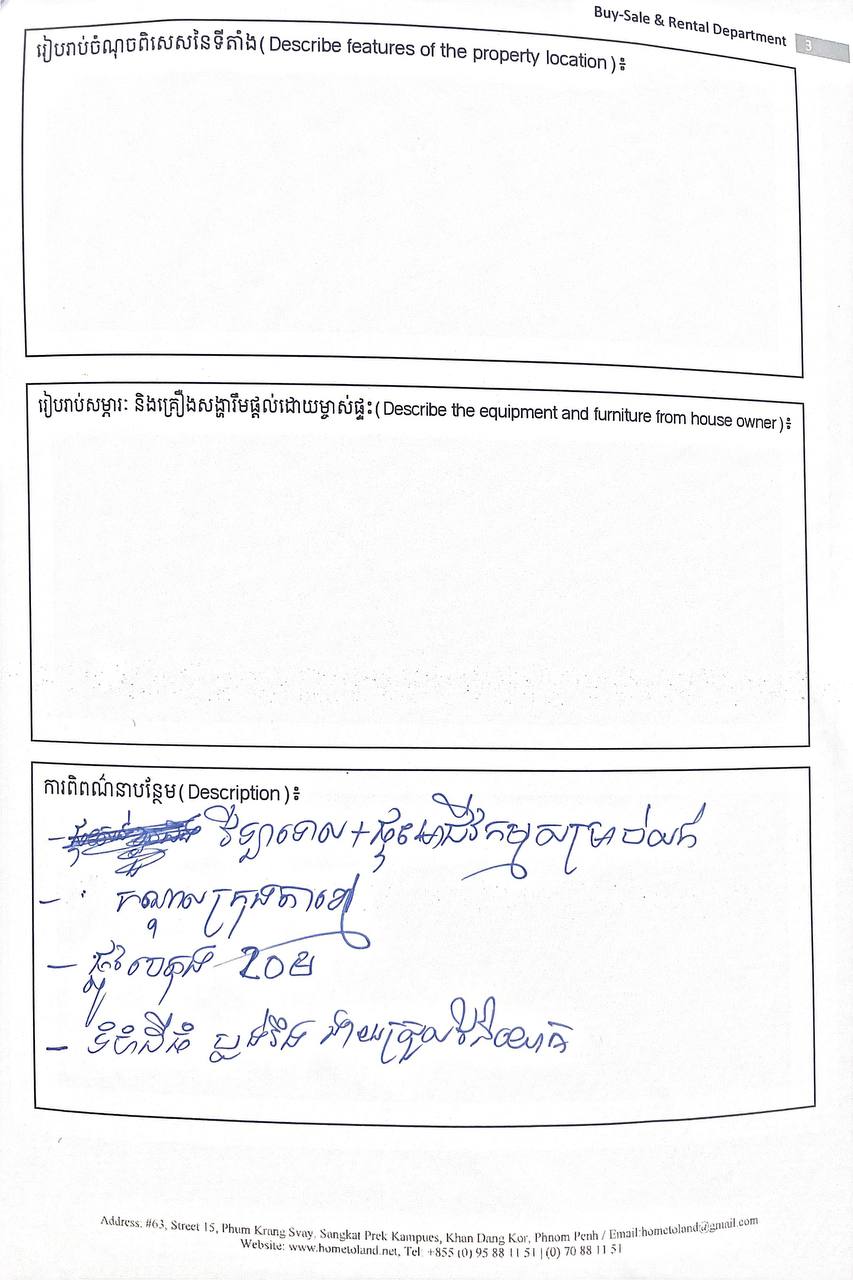 Buy-Sale & Rental Department 3
រៀបរាប់ចំណុចពិសេសនៃទីតាំង( Describe features of the property location )៖
រៀបរាប់សម្ភារៈ និងគ្រឿងសង្ហារឹមផ្តល់ដោយម្ចាស់ផ្ទះ( Describe the equipment and furniture from house owner )៖
ការពិពណ៌នាបន្ថែម( Description )៖
- វីឡាទោល + ផ្ទះអាជីវកម្មសម្រាប់លក់
- កណ្តាលក្រុងតាខ្មៅ
- ផ្លូវបេតុង 20ម
- ទំហំដីធំ ប្លង់រឹង ងាយស្រួលវិនិយោគ
Address: #63, Street 15, Phum Krang Svay, Sangkat Prek Kampues, Khan Dang Kor, Phnom Penh / Email:hometoland@gmail.com
Website: www.hometoland.net, Tel: +855 (0) 95 88 11 51 | (0) 70 88 11 51